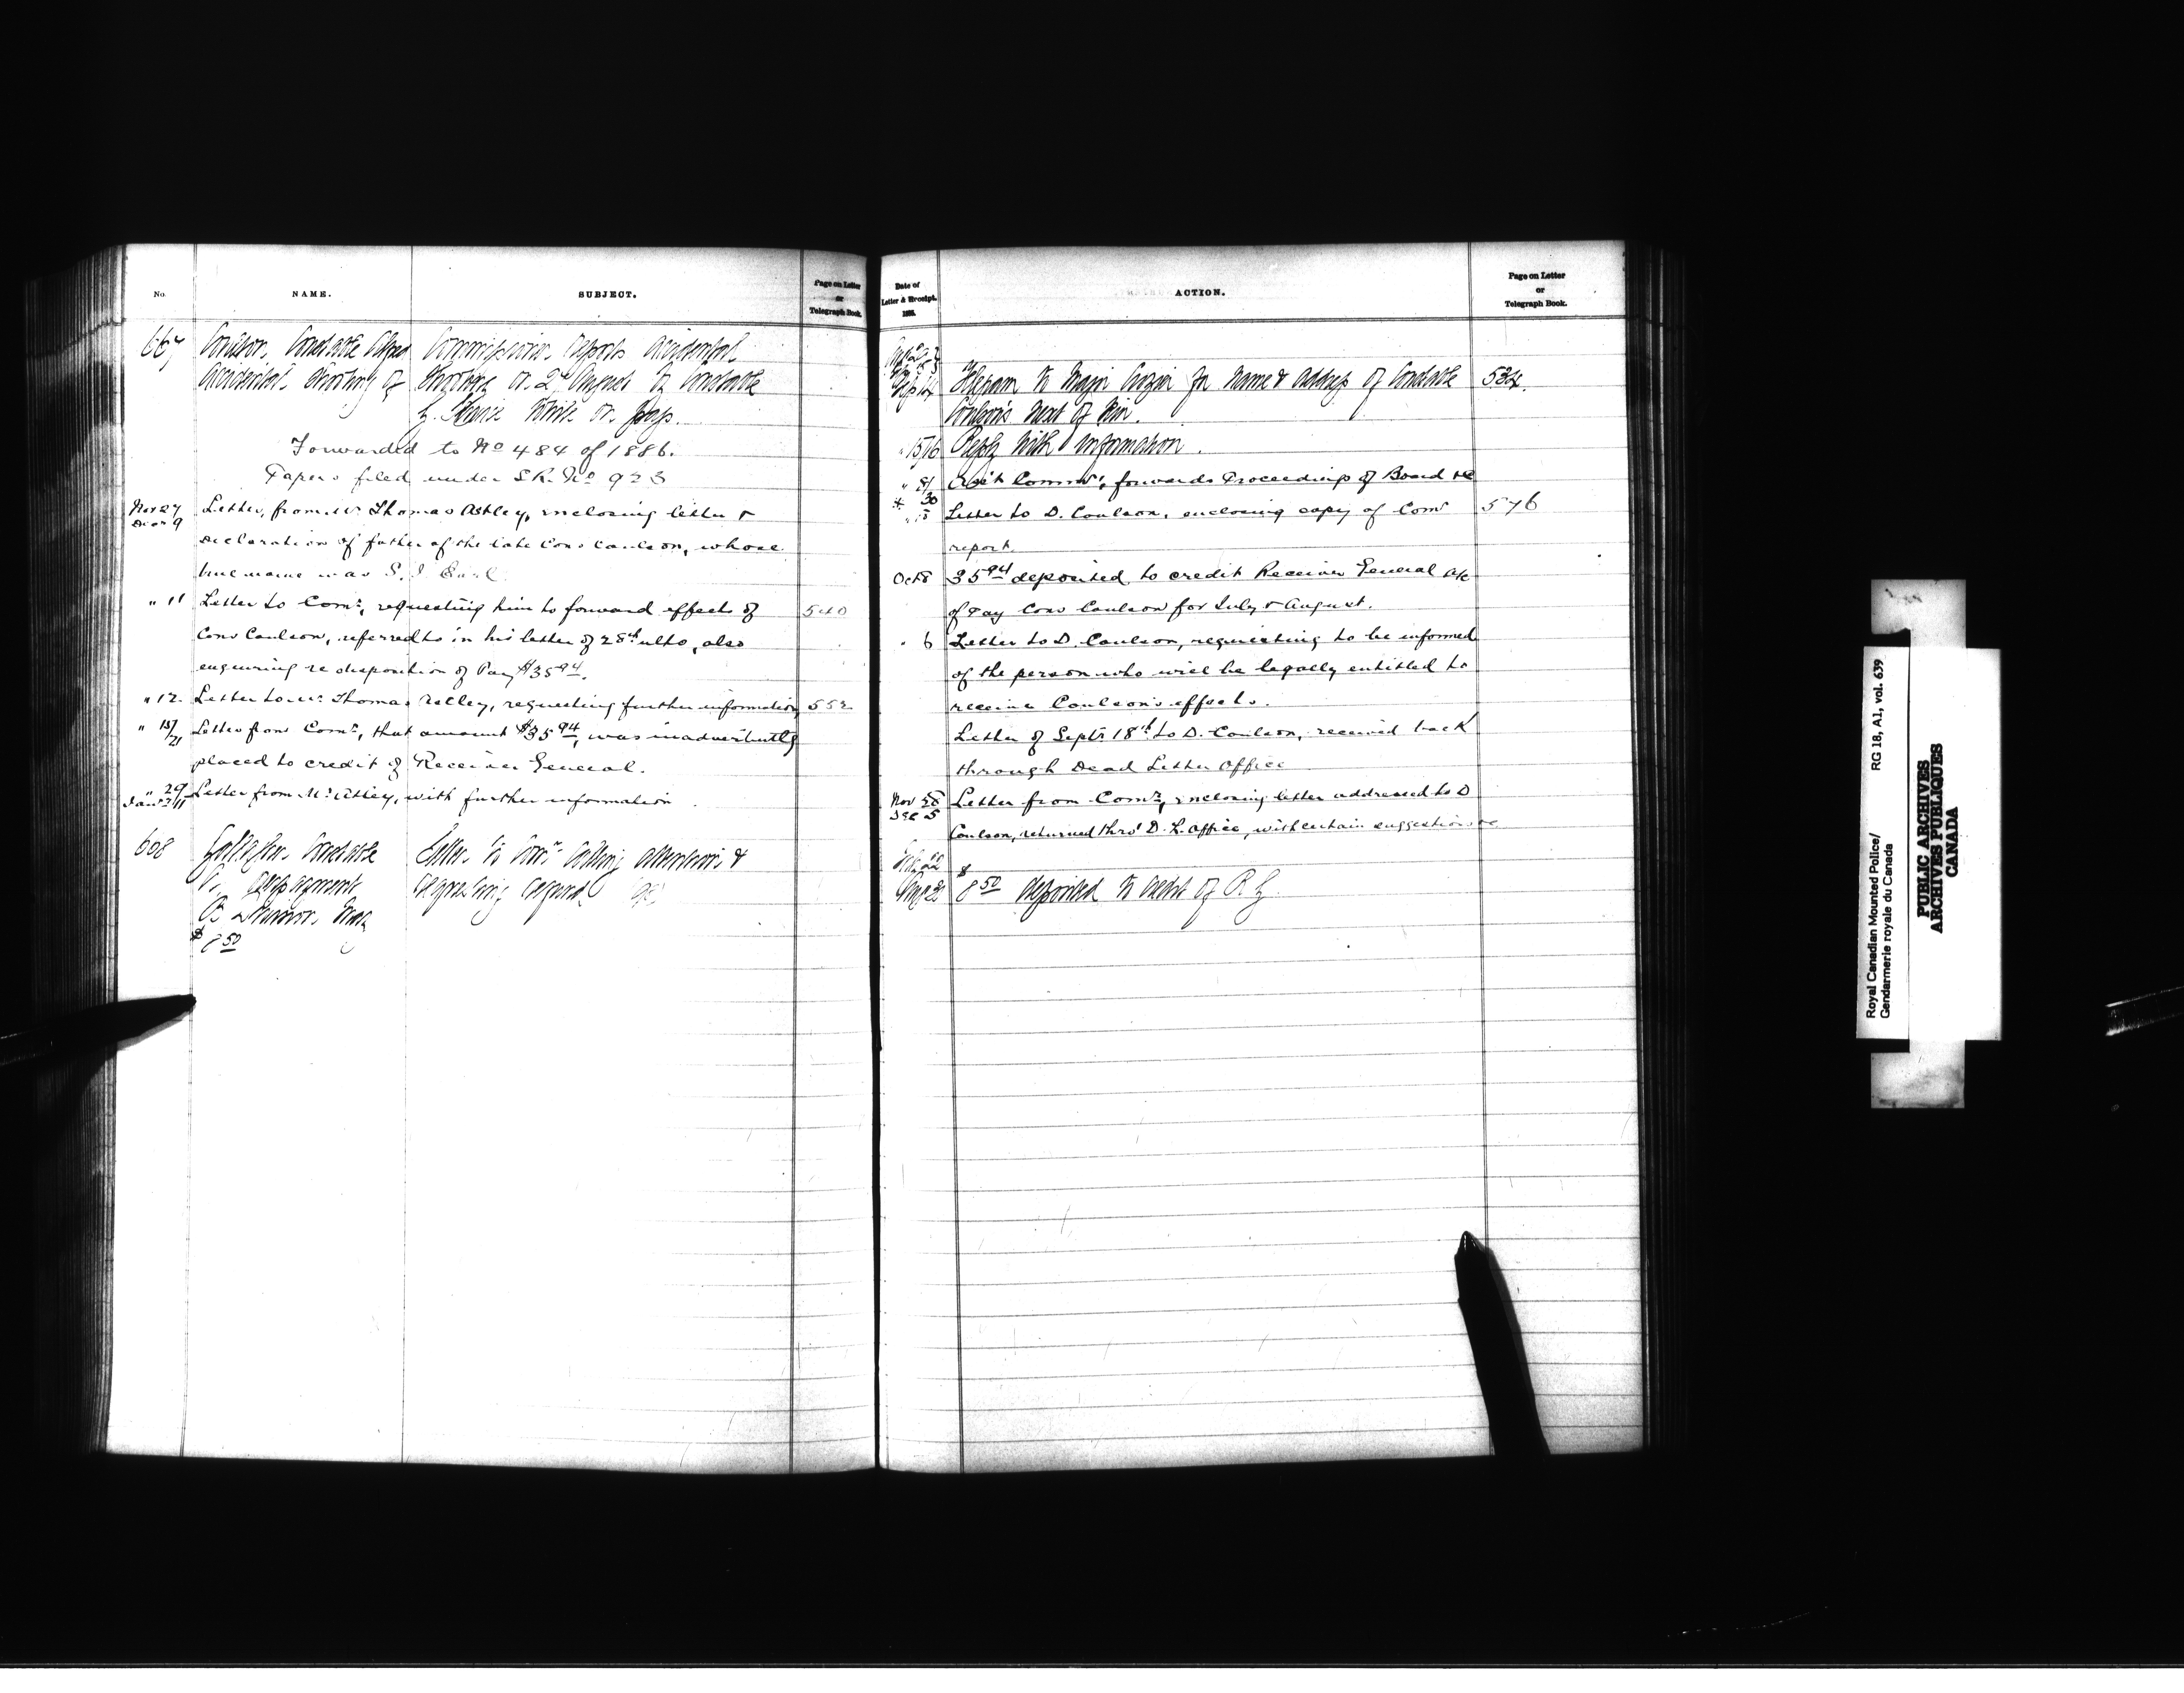 No.
NAME.
SUBJECT.
Page on Letter
or
Telegraph Book.
667
Constable
Commissioner reports accidental
Accidental shooting of
shooting on 2d August of Constable
Forwarded to No 484 of 1886.
Papers filed under No 923
Nov 27
Dec 9
Letter from Mr Thomas Astley, inclosing letter &
declaration of father of the late Cons Coulson, whose
true name was S. J.
" 11
Letter to Comr, requesting him to forward effects of
540
Cons Coulson, referred to in his letter of 28th ulto, also
enquiring re disposition of Pay $35 94.
" 12
Letter to Mr Thomas requesting further information
552
" 15/21
Letter from Comr, that amount $35 94, was inadvertently
placed to credit of Receiver General.
" 29
Jan 11
Letter from Mr Astley, with further information
608
Constable
Letter to Comr calling attention &
requesting refund
$8 50
Date of
Letter & Receipt.
188
ACTION.
Page on Letter
or
Telegraph Book.
Sept 14
Telegram to Major Crozier for name & address of Constable
534.
next of Kin.
" 15/16
Reply with information.
forwards Proceedings of Board &c
" 30
Letter to D. Coulson, enclosing copy of Comr
576
report.
Oct 8
35 94 deposited to credit Receiver General a/c
of Pay Cons Coulson for July & August.
" 6
Letter to D. Coulson, requesting to be informed
of the person who will be legally entitled to
receive Coulson's effects.
Letter of Septr 18th to D. Coulson, received back
through Dead Letter Office
Nov 28
Dec 5
Letter from Comr, inclosing letter addressed to D
Coulson, returned thro' D. L. Office, with certain suggestions &c
8 50 deposited to credit of R G
Royal Canadian Mounted Police/
Gendarmerie royale du Canada
RG 18, A1, vol. 639
PUBLIC ARCHIVES
ARCHIVES PUBLIQUES
CANADA